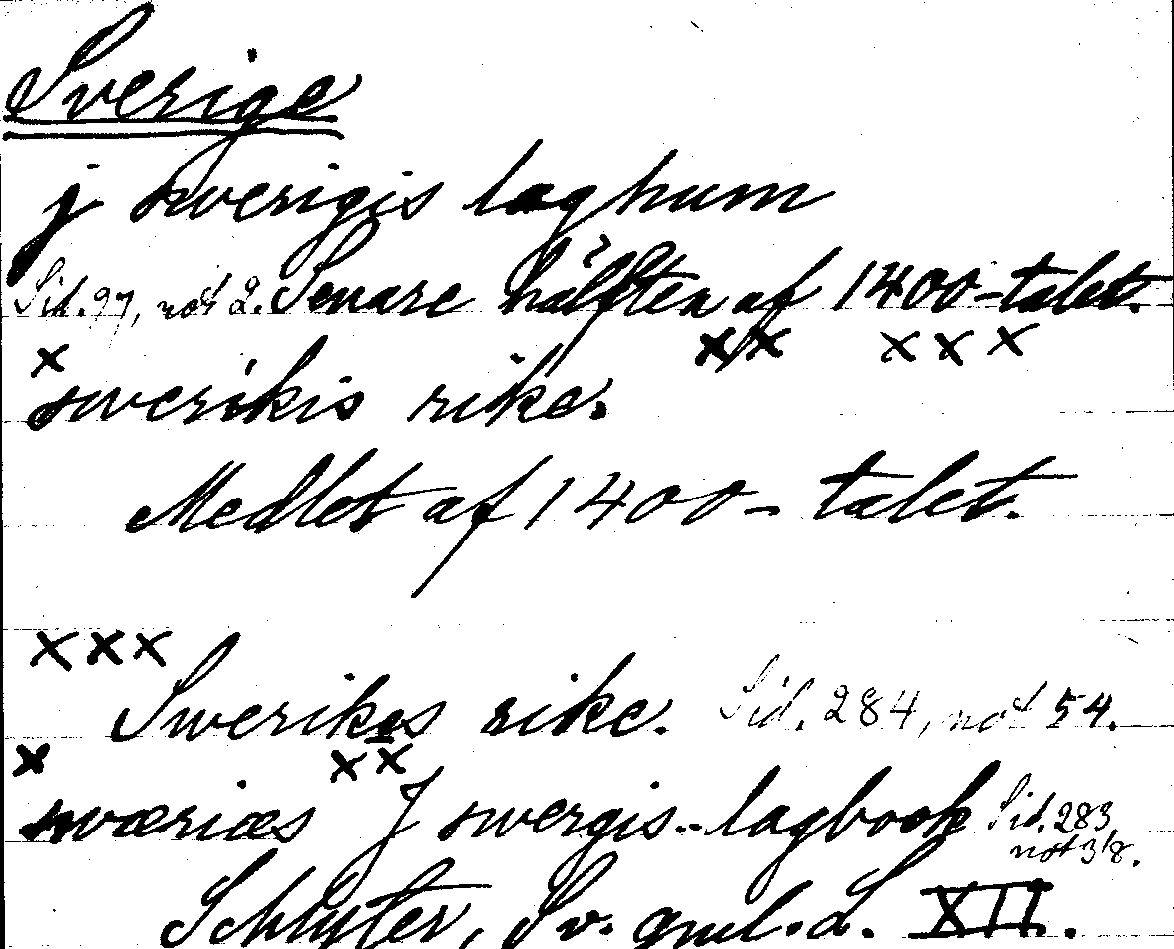 Sverige
j swerigis laghum
Sid. 97, not 2. Senare hälften af 1400-talet.
x xx xxx
swerikis rike.
Medlet af 1400-talet.
xxx
Swerikes rike. Sid. 284, not 54.
x xx
swæriæs J swergis-lagbook Sid. 283,
not 38.
Schlyter, Sv. gml. L. XII.